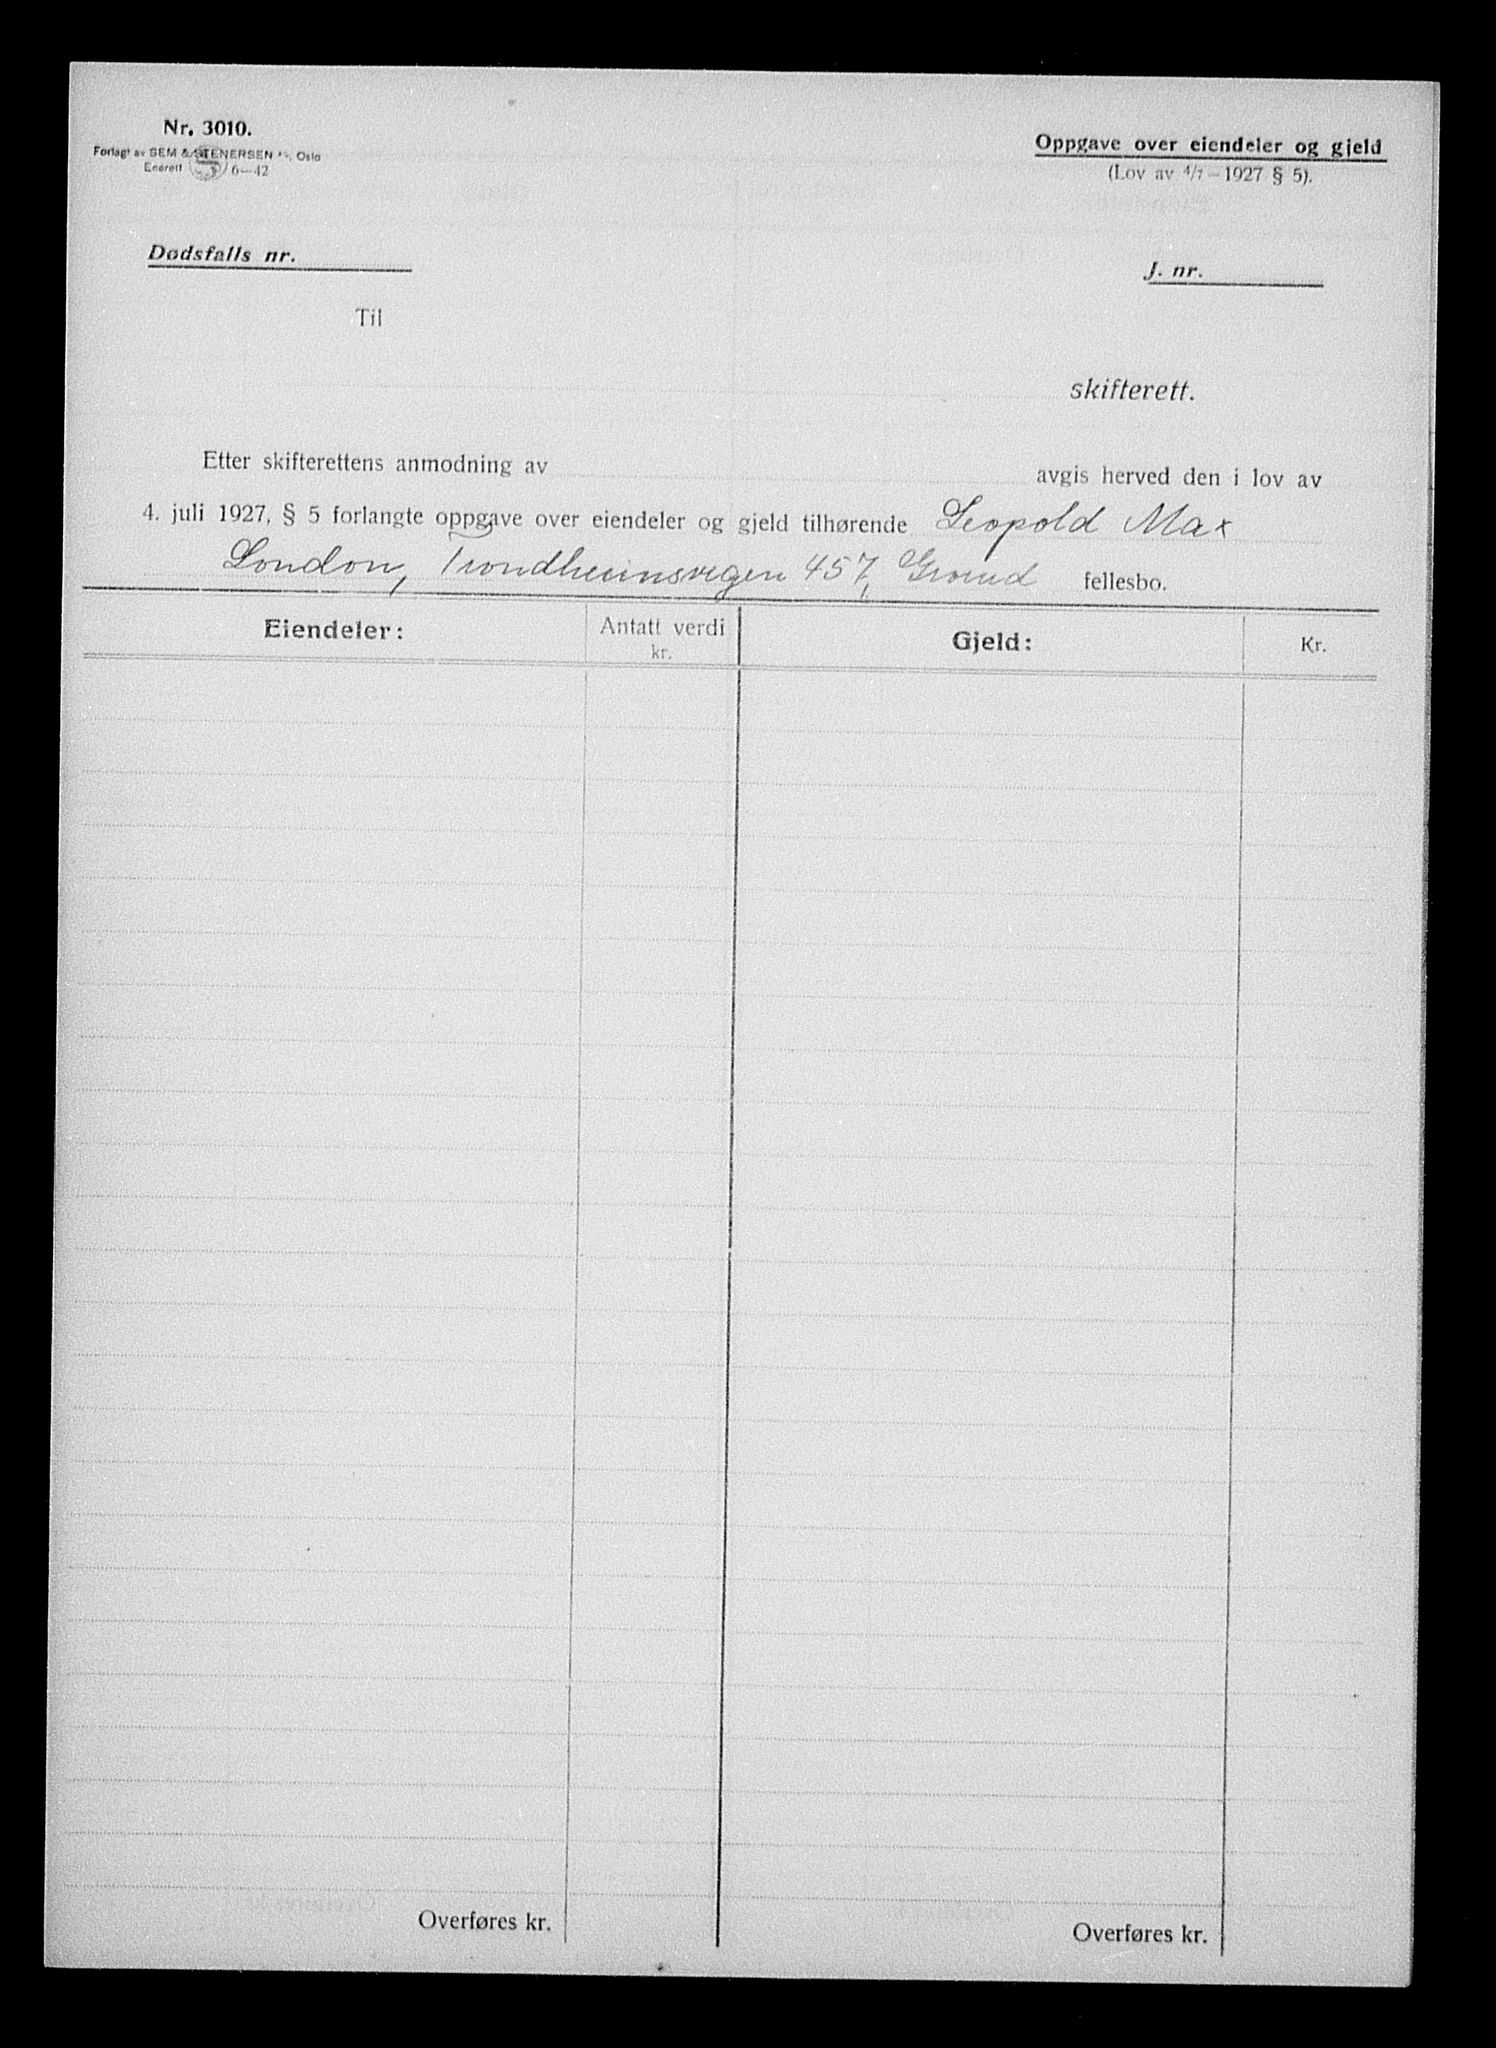 Nr. 3010.
Forlagt av SEM & STENERSEN A/S, Oslo
Enerett 6—42
Oppgave over eiendeler og gjeld
(Lov av 4/7 – 1927 § 5).
Dødsfalls nr.
J. nr.
Til
skifterett.
Etter skifterettens anmodning av avgis herved den i lov av
4. juli 1927, § 5 forlangte oppgave over eiendeler og gjeld tilhørende Leopold Max
London, Trondheimsvegen 457, Grorud fellesbo.
Eiendeler: Antatt verdi kr. Gjeld: Kr.
Overføres kr. Overføres kr.